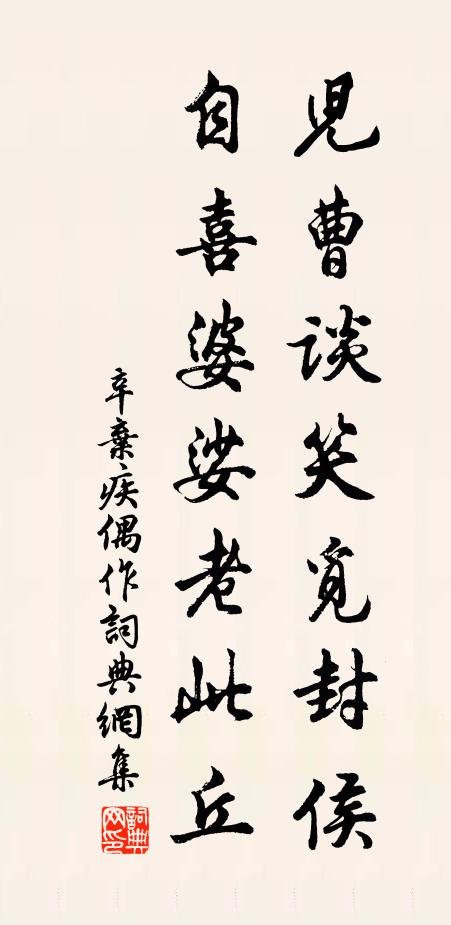 兒曹談笑覓封侯
自喜婆娑老此丘
辛棄疾偶作詞典網集
詞典
网印